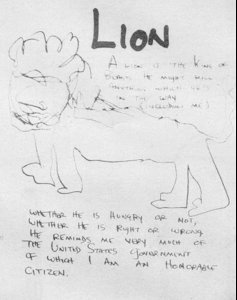 LION
A LION IS THE KING OF
BEASTS HE MIGHT KILL
ANYTHING WHICH GETS
IN THE WAY
(INCLUDING ME)
WHETHER HE IS HUNGRY OR NOT,
WHETHER HE IS RIGHT OR WRONG.
HE REMINDS ME VERY MUCH OF
THE UNITED STATES GOVERNMENT
OF WHICH I AM AN HONORABLE
CITIZEN.